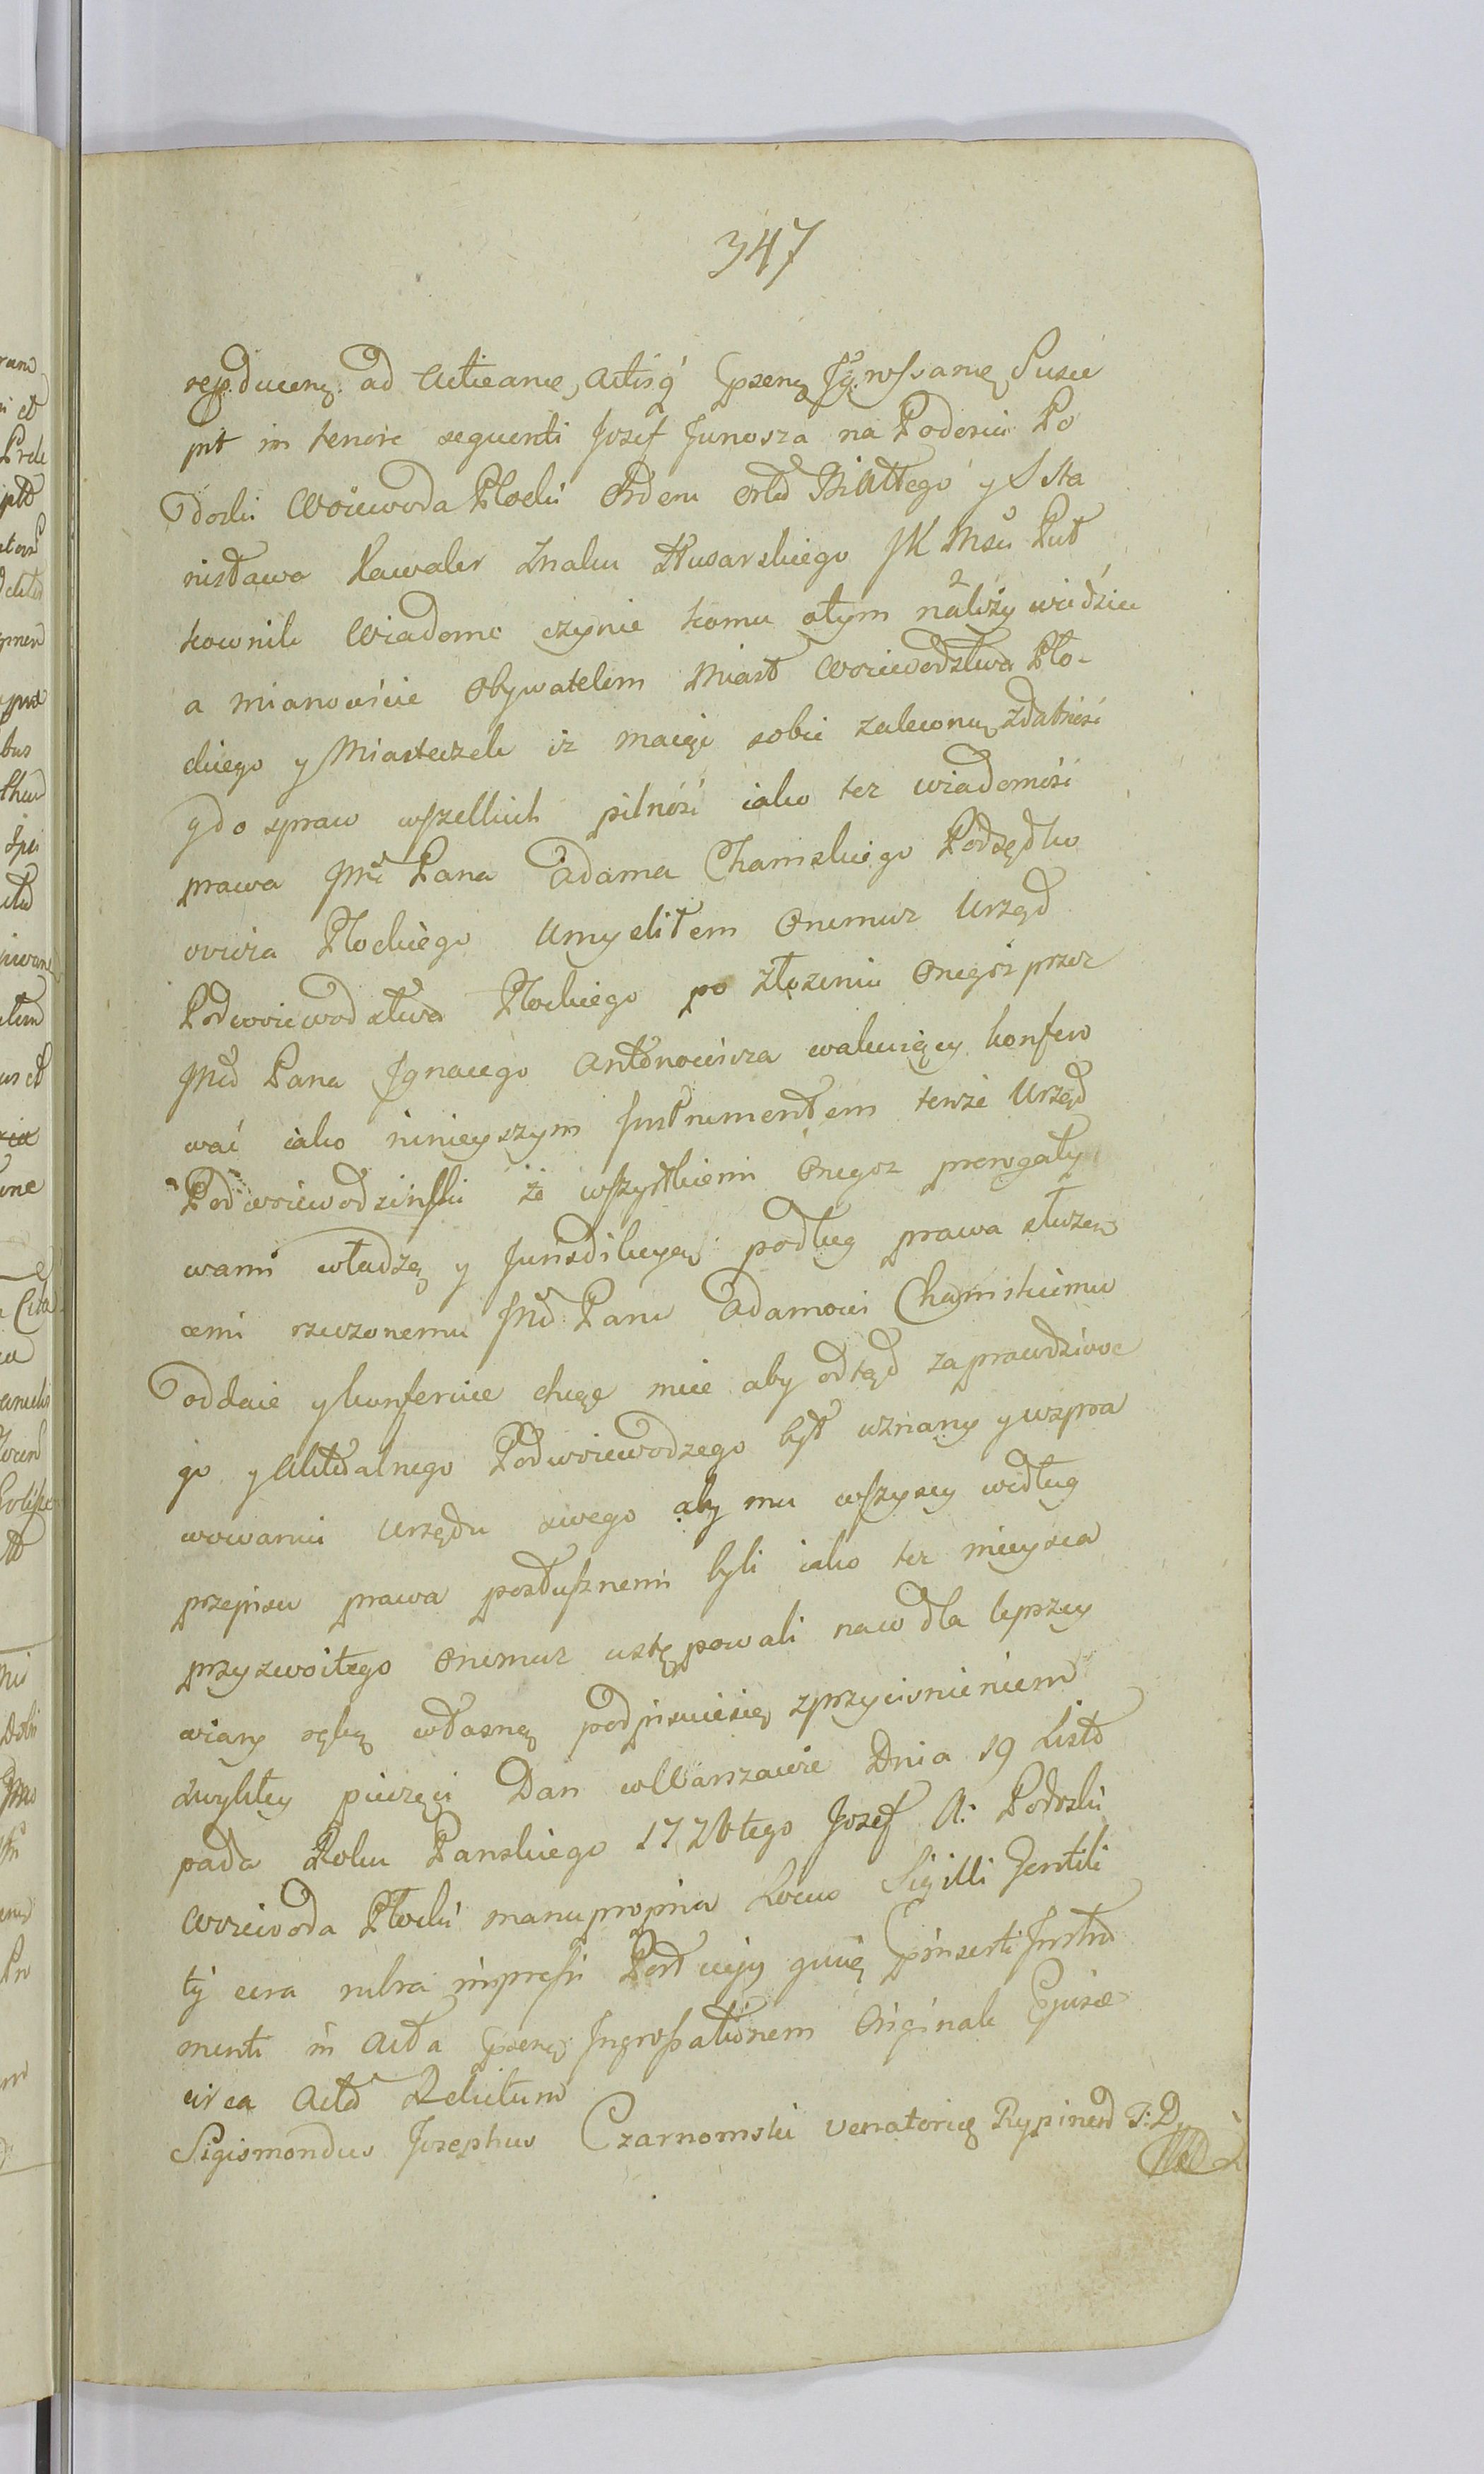 347
reproducens ad Acticam, Actisq́ Gpsenę Jgrossamę Susce
pit in tenore sequenti Josef Junosza na Podosiu Po
doski Woiewoda Płocki Orderu Orła Białłego y S Sta
nisława Kawaler Znaku Husarskiego JK Msci Puł
kownik Wiadomo czynie komu otym nalezy wiedziec
a mianowicie Obywatelom Miast Woiewodztwa Pło-
ckiego y Miasteczek iz maiąc sobie zaleconą zdatnosc
y do spraw wszelkich pilnosc iako tez wiadomosc
prawa Jmci Pana Adama Chamskiego Podsędko
wicza Płockiego Umyslilem Onemuz Urząd
Podwoiewodztwa Płockiego po złozeniu Onegoz przez
Jmci Pana Jgnacego Antonowicza wakuiący konfero
wac iako ninieyszym Jnstrumentem tenze Urząd
Podwoiewodzinski ze wszystkiemi Onegoz prerogaty
wami władzą y Jurisdikcyą podług prawa słuzą
cemi rzeczonemu Jmci Panu Adamowi Chamskiemu
oddaie y konferuie chcąc miec aby odtąd za prawdziwe
go y Aktualnego Podwoiewodzego był uznany y w spra
wowaniu Urzędu swego aby mu wszyscy według
przepisu prawa posłusznemi byli iako tez mieysca
przyzwoitego Onemuz ustępowali na co dla lepszey
wiary ręką własną podpisuiesię z przycisnieniem
zwykłey pieczęci Dan w Warszawie Dnia 19 Listo
pada Roku Panskiego 1776tego Josef A: Podoski
Woiewoda Płocki manu propria Locus Sigilli Gentili
tij cera rubra impressi Post cujus quidę Gpinserti Jnstru
menti in Acta Gpsenę Jngrossationem Originale Ejusde
circa Acta Relictum
Sigismondus Josephus Czarnomski Venatorię Rypinens